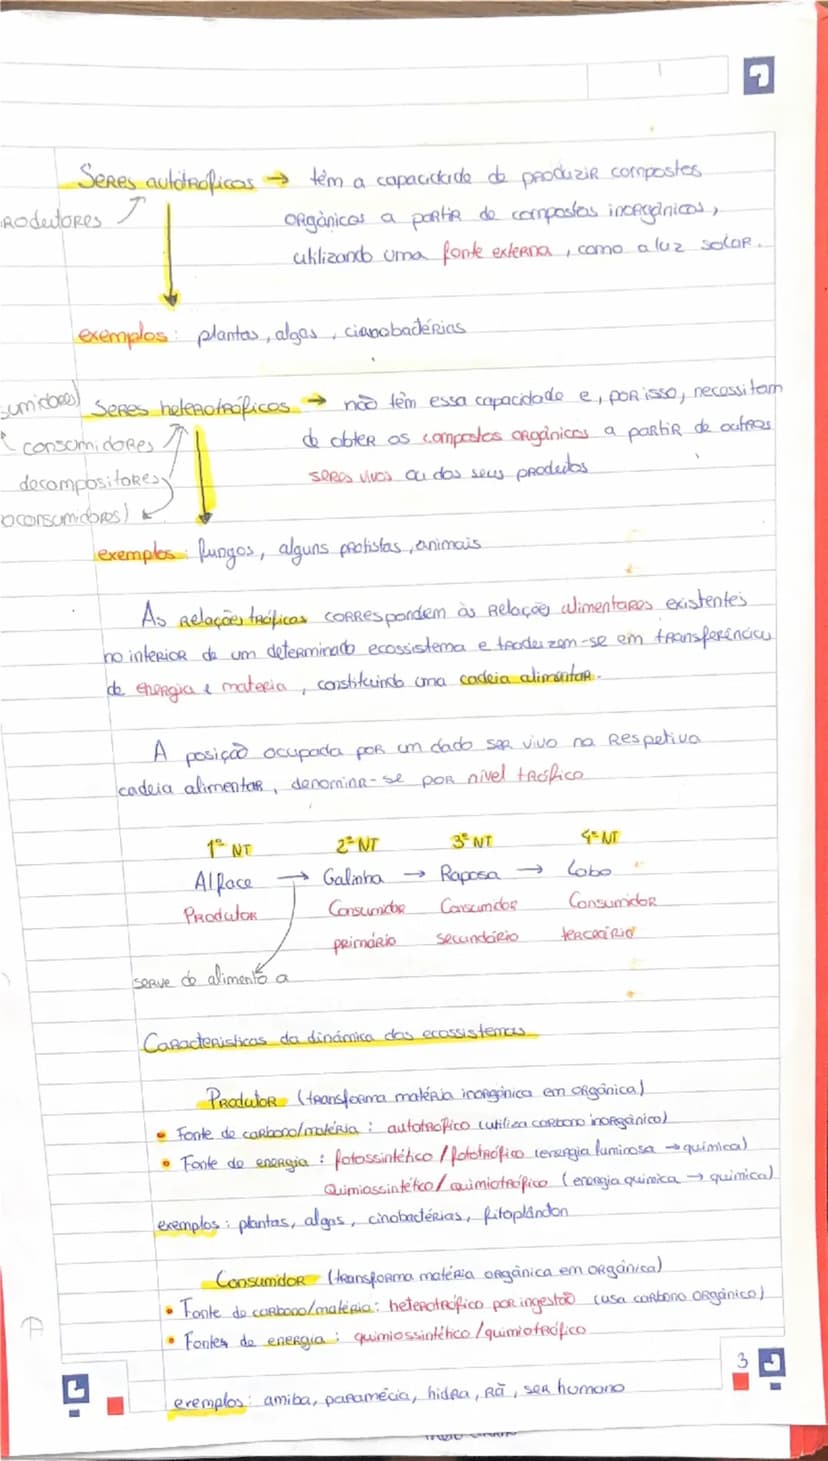 Seres autotróficos → têm a capacidade de produzir compostos
rodutores
orgânicos a partir de compostos inorgânicos,
utilizando uma fonte externa, como a luz solar.
exemplos: plantas, algas, cianobactérias
sumidores)
Seres heterotróficos → não têm essa capacidade e, por isso, necessitam
consumidores
de obter os compostos orgânicos a partir de outros
decompositores
seres vivos ou dos seus produtos
oconsumidores)
exemplos: fungos, alguns protistas, animais
As relações tróficas correspondem às relações alimentares existentes
no interior de um determinado ecossistema e traduzem-se em transferência
de energia e matéria, constituindo uma cadeia alimentar.
A posição ocupada por um dado ser vivo na respetiva
cadeia alimentar, denomina-se por nível trófico
1º NT 2º NT 3º NT 4º NT
Alface → Galinha → Raposa → Lobo
Produtor Consumidor Consumidor Consumidor
primário secundário terceário
serve de alimento a
Características da dinâmica dos ecossistemas
Produtor (transforma matéria inorgânica em orgânica)
• Fonte de carbono/matéria: autotrófico (utiliza carbono inorgânico)
• Fonte de energia: fotossintético/fototrófico (energia luminosa → química)
Quimiossintético/quimiotrófico (energia química → química)
exemplos: plantas, algas, cinobactérias, fitoplândon
Consumidor (transforma matéria orgânica em orgânica)
• Fonte de carbono/matéria: heterotrófico por ingestão (usa carbono orgânico)
• Fontes de energia: quimiossintético/quimiotrófico
3
exemplos: amiba, paramécia, hidra, rã, ser humano